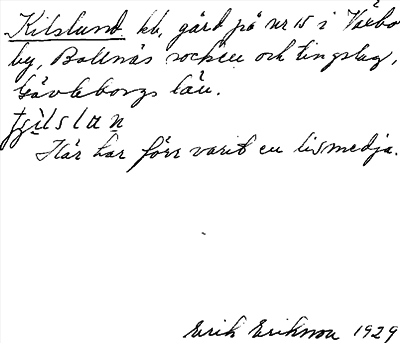 Kilslund kb, gård på nr 15 i Växbo
by, Bollnäs socken och tingslag,
Gävleborgs län.
Här har förr varit en lismedja.
Erik Erikson 1929